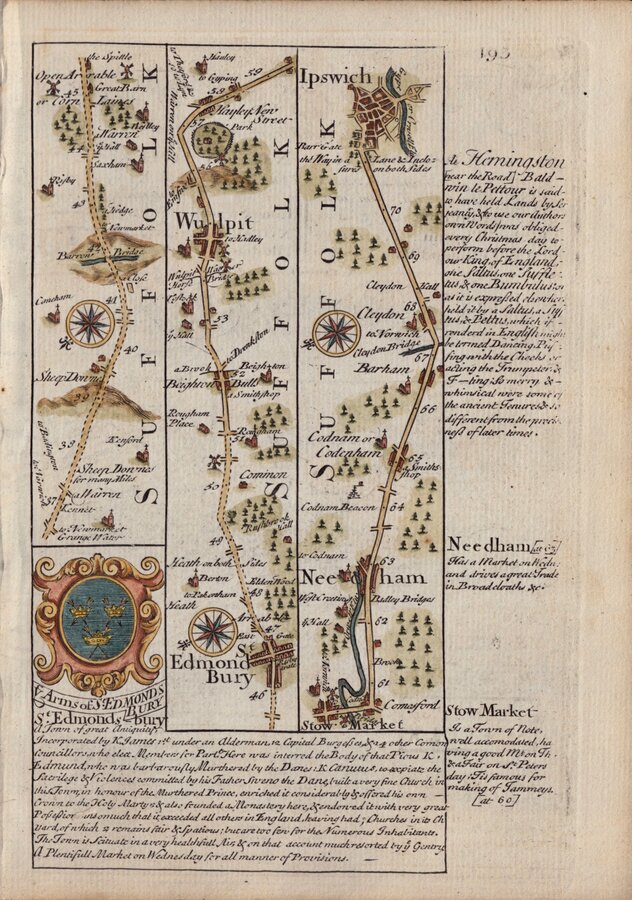 193
the Spittle
Open Arrable
or Corn
Great Barn
Lames
45
Warren
ẙ Hall
Saxham
Risby
43
a Hedge
Newmarket
Barrow Bridge
a Close
41
Caneham
40
Sheep Downs
39
38
Kenford
Sheep Downes
for many Miles
a Warren
37
Kennet
to Newmarket
Grange Water
SUFFOLK
Ye Arms of St EDMONDS
BURY
Hauley
to Gyping
59
58
Hayley New
Street
57
Park
56
Wulpit
to Hadley
Wulpit
Bridg
ẙ Hall
53
to Drenkston
a Brook
Beighton
52
Beighton
Bull
a Smithshop
Rougham
Place
51
Rougham
Common
50
Rushbrook
Hall
49
Heath on both
Sides
Berton
Elden Wood
to Pakenham
48
Heath
Arrable
47
East Gate
St
Edmond
Bury
46
SUFFOLK
Ipswich
Barr Gate
this Way in a
Lane & Inclo=
sures
on both Sides
70
69
Claydon
Hall
68
Cleydon
to Norwich
Claydon Bridge
67
Barham
66
Codnam or
Codenham
65
a Smiths
shop
Codnam Beacon
64
to Codnam
63
Needham
West Creeting
Badley Bridges
ẙ Hall
62
Brook
61
Comesford
Stow Market
SUFFOLK
At Hemingston
near the Road Bald=
win le Pettour is said
to have held Lands by Ser
jeanty, & to use our Authors
own Words was obliged
every Christmas day to
perform before the Lord
our King of England,
one Saltus, one Suffla=
tus & one Bumbulus; or
as it is expressed elsewhere
held it by a Saltus, a Suf
tus & Pettus, which if
renderd in English might
be termed Dancing Puf=
fing with the Cheeks or
acting the Trumpeter &
F—ting so merry &
whimsical were some of
the ancient Tenures & so
different from the precis
ness of later times.
Needham [at 63]
Has a Market on Wedn.
and drives a great Trade
in Broad cloaths &c.
Stow Market
Is a Town of Note,
well accomodated, ha
ving a good Mt. on Th.
& a Fair on St. Peters
day: Tis famous for
making of Tammeys.
[at 60]
St. Edmonds bury
A Town of great Antiquity
Incorporated by K. James 1st. under an Alderman, 12 Capital Burgesses, & 24 other Comon
Councillors, who elect 2 Members for Parlt. Here was interred the Body of that Pious K.
Edmund, who was barbarously Murthered by the Danes K. Canutus, to expiate the
Sacrilege & Violences committed by his Father Sueno the Dane, built a very fine Church in
this Town, in honour of the Murthred Prince, enriched it considerably & offered his own
Crown to the Holy Martyr & also founded a Monastery here, & endowed it with very great
Possessions insomuch that it exceeded all others in England, having had 3 Churches in its Ch
yard, of which 2 remains fair & spatious; but are too few for the Numerous Inhabitants.
The Town is Scituate in a very healthfull Air, & on that account much resorted by ẙ Gentry
A Plentifull Market on Wednesday for all manner of Provisions.